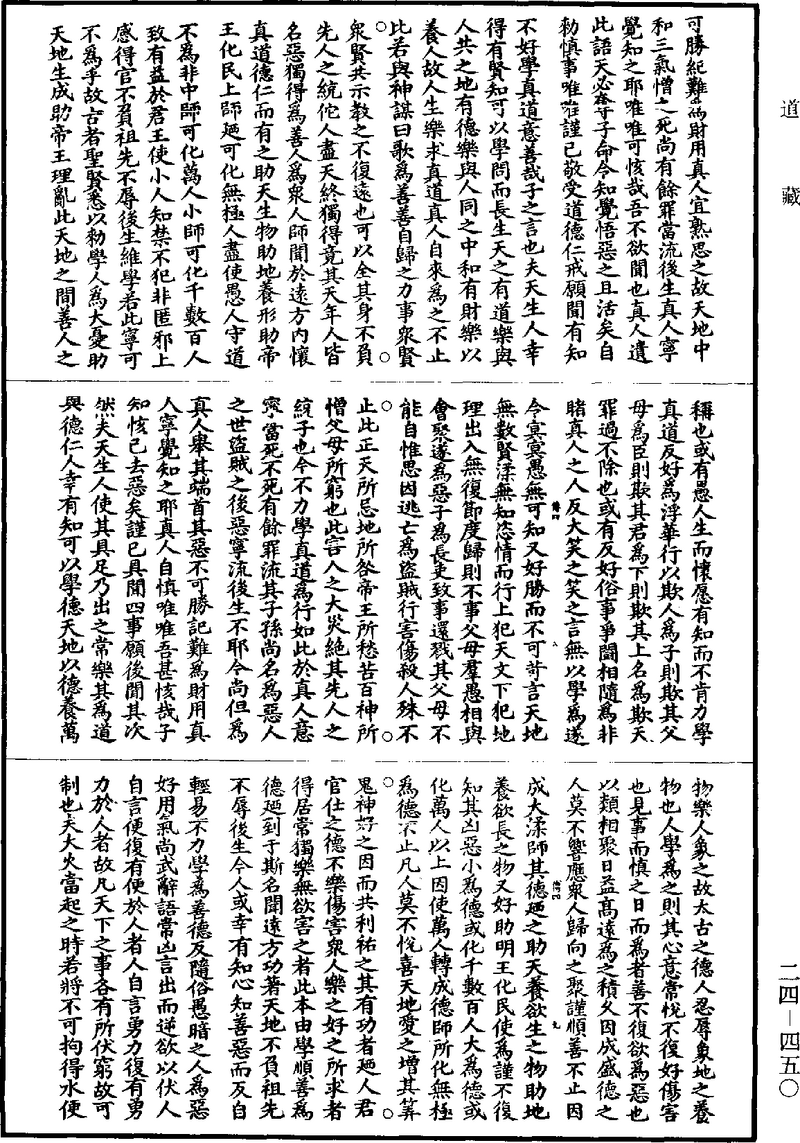 道藏
可勝紀難為財用真人宜熟思之故天地中
和三氣憎之死尚有餘罪當流後生真人寧
覺知之耶唯唯可悔哉吾不欲聞也真人遺
此語天必奪子命令知覺悟惡之且活矣自
勑慎事唯唯謹已敬受道德仁戒願聞有知
不好學真道意善哉子之言也夫天生人幸
得有賢知可以學問而長生天之有道樂與
人共之地有德樂與人同之中和有財樂以
養人故人生樂求真道真人自來為之不止
比若與神謀日歌為善善自歸之力事衆賢
衆賢共示教之不復遠也可以全其身不負
先人之統佗人盡夭終獨得竟其天年人皆
名惡獨得為善人為衆人師聞於遠方内懷
真道德仁而有之助天生物助地養形助帝
王化民上師廼可化無極人盡使愚人守道
不為非中師可化萬人小師可化千數百人
致有益於君王使小人知禁不犯非匿邪上
感得官不負祖先不辱後生維學若此寧可
不為乎故古者聖賢悉以勑學人為大憂助
天地生成助帝王理亂此天地之間善人之
稱也或有愚人生而懷愿有知而不肯力學
真道反好為浮華行以欺人為子則欺其父
母為臣則欺其君為下則欺其上名為欺天
罪過不除也或有反好俗事爭鬭相隨為非
睹真人之人反大笑之笑之言無以學為遂
令冥冥愚無可知又好勝而不可苛言天地
無數賢渘無知恣情而行上犯天文下犯地
理出入無復節度歸則不事父母羣愚相與
會聚遂為惡子為長吏致事還戮其父母不
能自惟思因逃亡為盜賊行害傷殺人殊不
止此正天所忌地所咎帝王所愁苦百神所
憎父母所窮也此害人之大災絶其先人之
統子也今不力學真道為行如此於真人意
寧當死不死有餘罪流其子孫尚名為惡人
之世盜賊之後惡寧流後生不耶今尚但為
真人舉其端首其惡不可勝記難為財用真
人寧覺知之耶真人自慎唯唯吾甚悔哉子
知悔已去惡矣謹已具聞四事願後聞其次
然夫天生人使其具足乃出之常樂其為道
與德仁人幸有知可以學德天地以德養萬
物樂人象之故太古之德人忍辱象地之養
物也人學為之則其心意常悅不復好傷害
也見事而慎之日而為者善不復欲為惡也
以類相聚日益高遠為之積久因成盛德之
人莫不響應衆人歸向之聚謹順善不止因
成大渘師其德廼之助天養欲生之物助地
養欲長之物又好助明王化民使為謹不復
知其凶惡小為德或化千數百人大為德或
化萬人以上因使萬人轉成德師所化無極
為德不止凡人莫不悅喜天地愛之增其筭
鬼神好之因而共利祐之其有功者廼人君
官仕之德不樂傷害衆人樂之好之所求者
得居常獨樂無欲害之者此本由學順善為
德廼到于斯名聞遠方功著天地不負祖先
不辱後生今人或幸有知心知善惡而反自
輕易不力學為善德反隨俗愚暗之人為惡
好用氣尚武辭語常凶言出而逆欲以伏人
自言便復有便於人者人自言勇力復有勇
力於人者故凡天下之事各有所伏窮故可
制也夫大火當起之時若將不可拘得水便
二四—四五〇